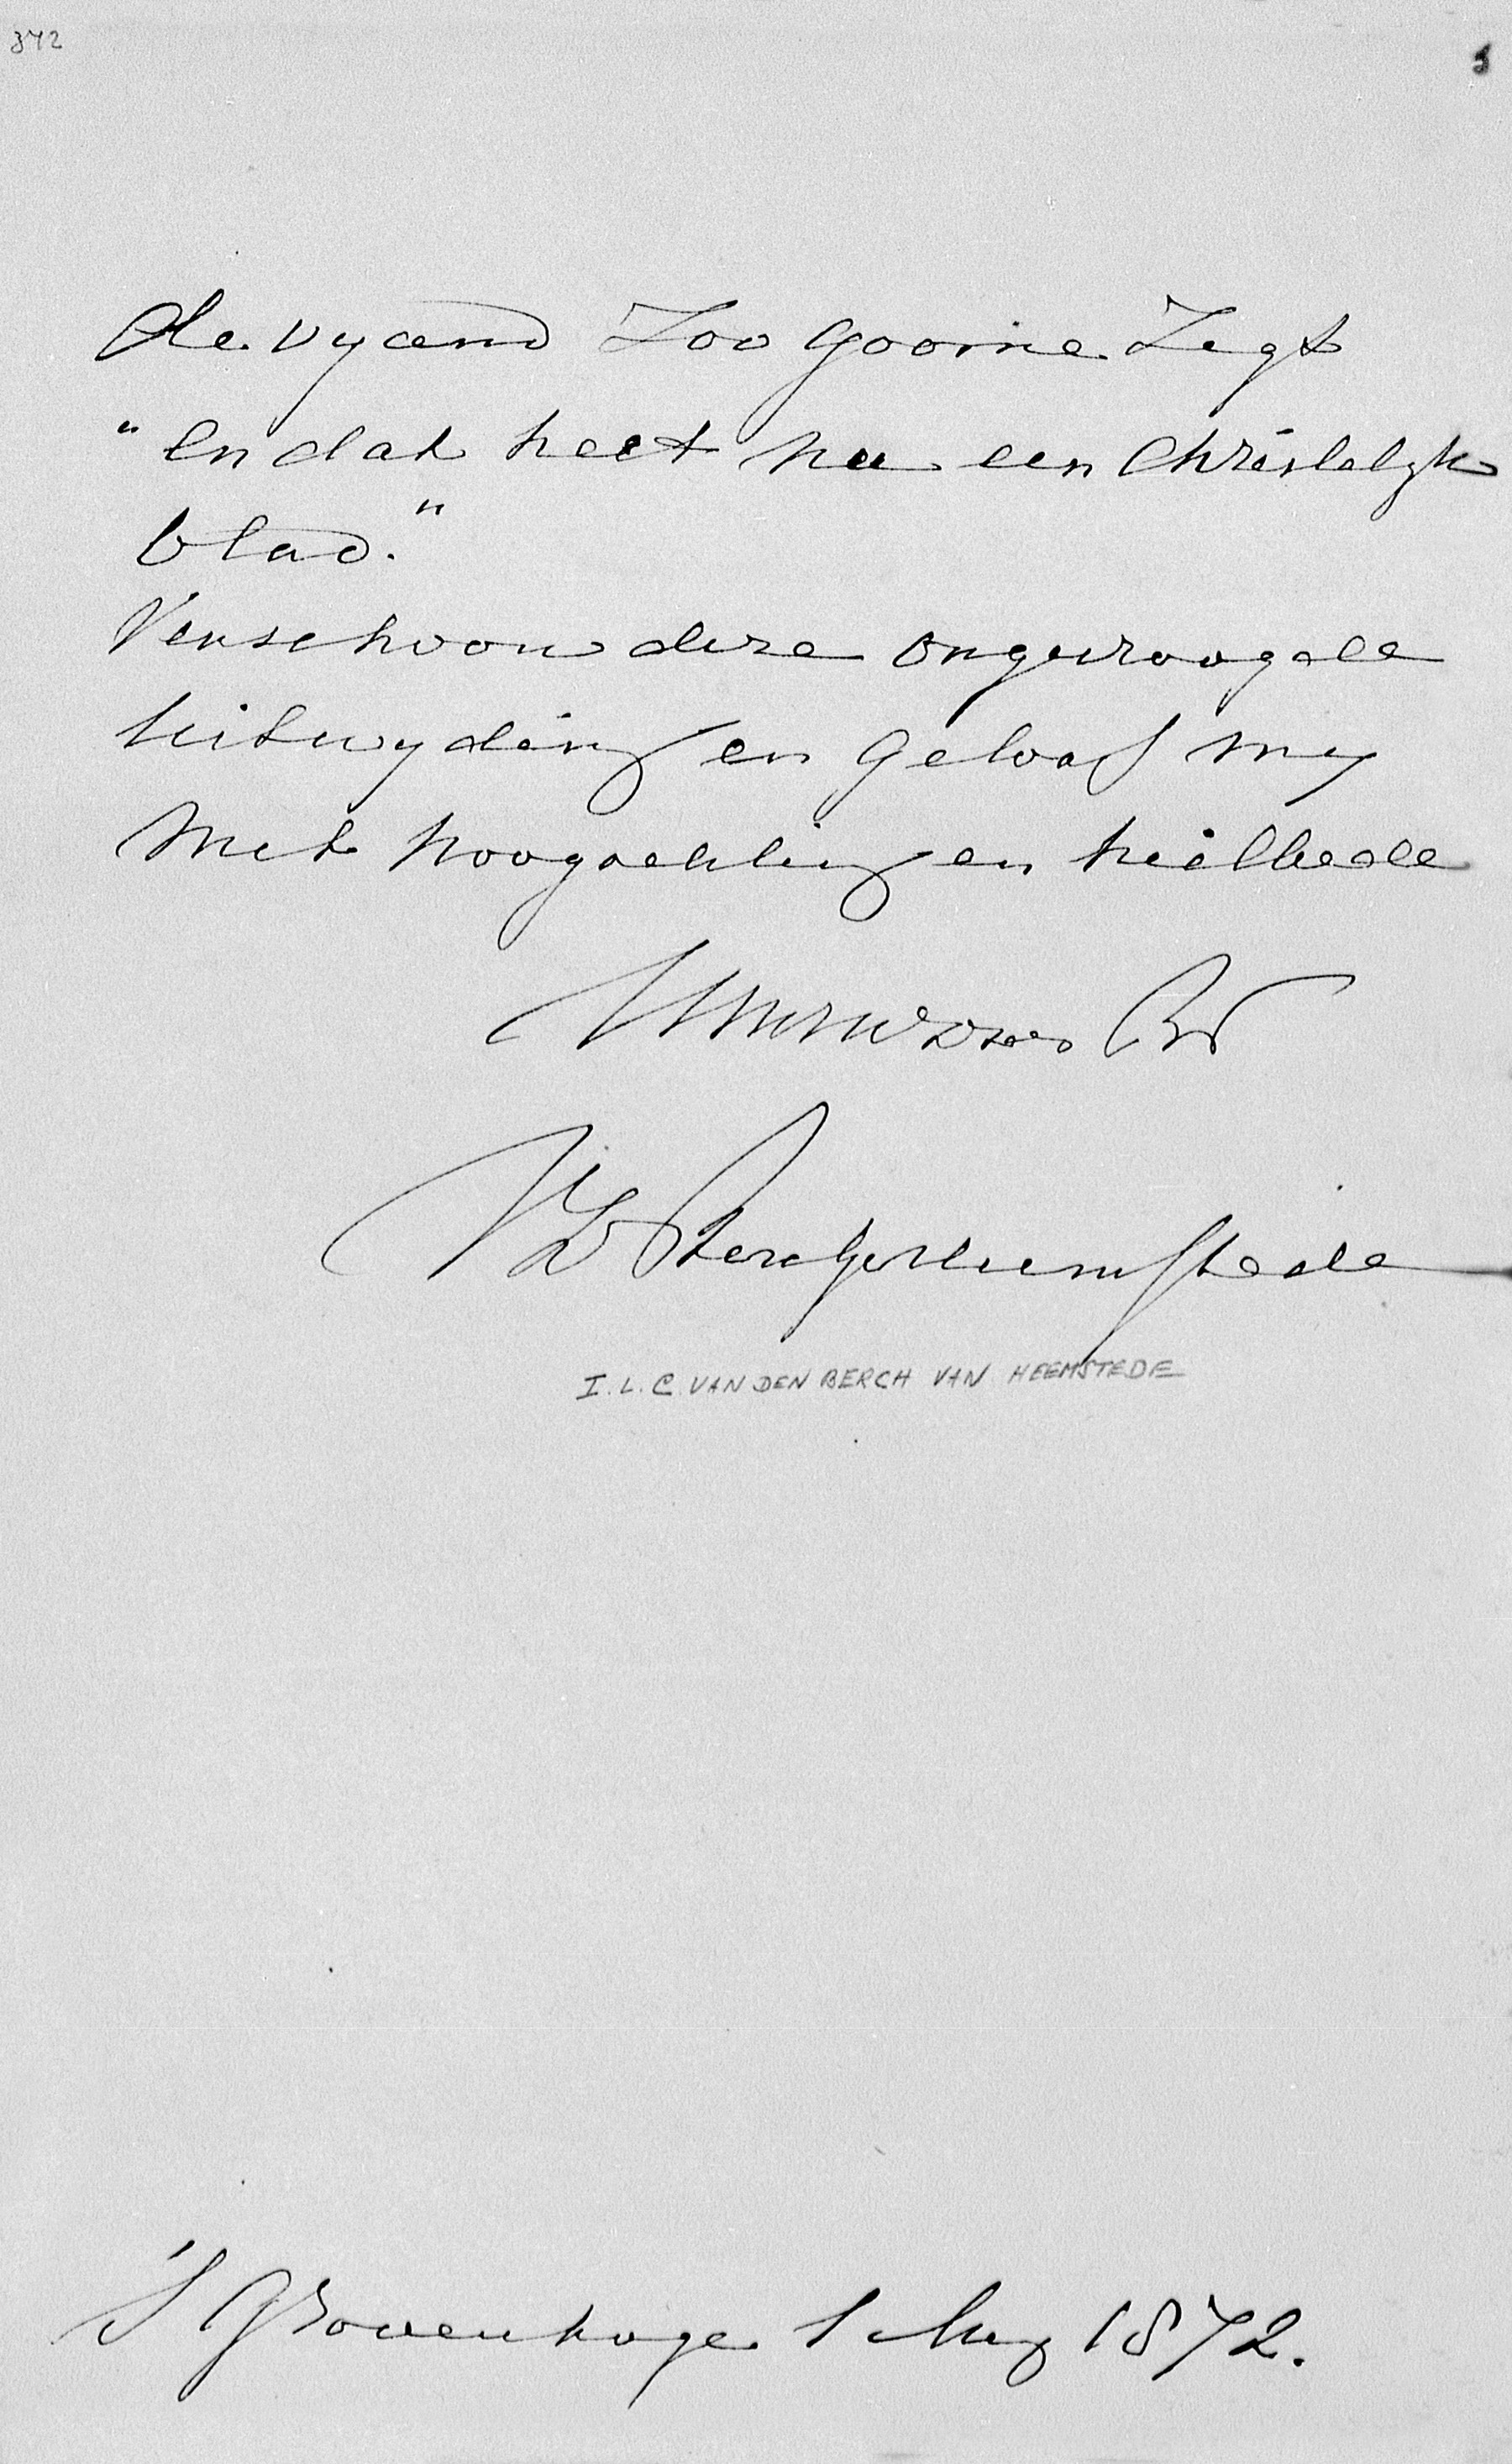 372
de vyand zoo gaarne zegt
"en dat heet nu een Christelyk
blad."
Verschoon deze ongevraagde
uitwyding en geloof my
met hoogachting en heilbede
I.L.C. VAN DEN BERCH VAN HEEMSTEDE
's Gravenhage 1 Aug 1872.